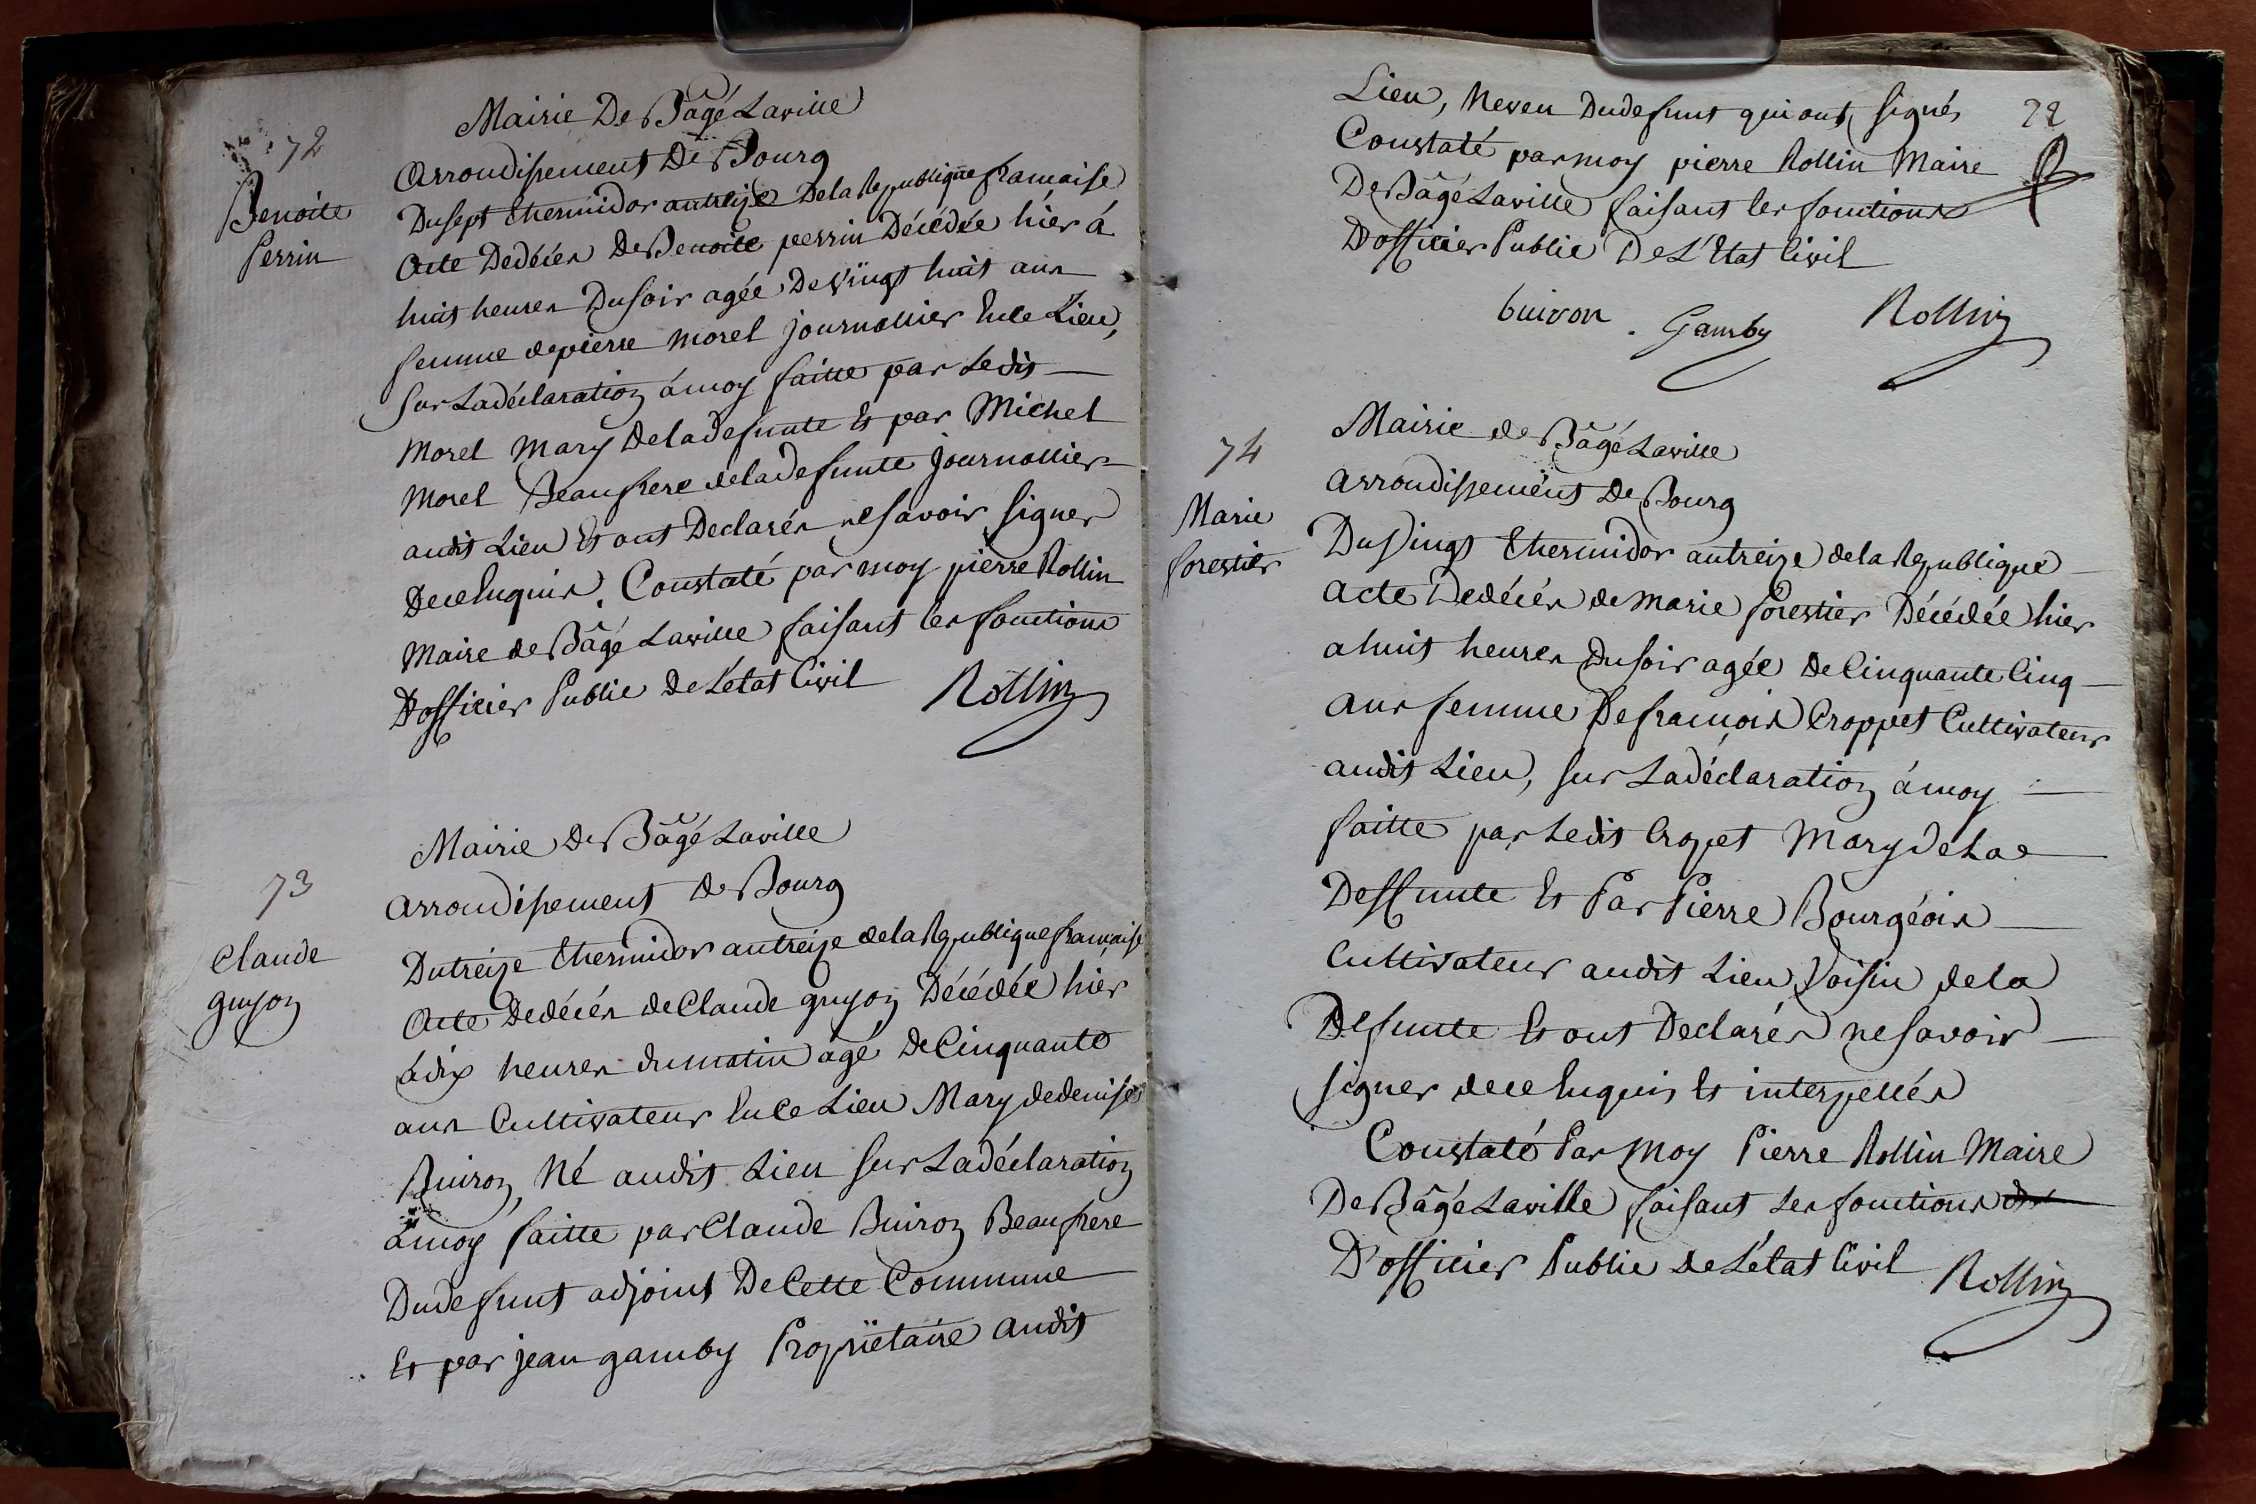 72
Benoite
Perrin
Mairie De Bâgé Laville
arrondissement De Bourg
Du sept thermidor an treize De la Republique francaise
Acte De décés De Benoite perrin Décédée hier á
huit heures Du soir agée De vingt huit ans
femme de pierre morel journallier En ce Lieu,
sur La déclaration á moy faitte par Ledit
morel mary De la defunte Et par Michel
morel Beaufrere de la defunte journallier
audit Lieu Et ont Declarés ne savoir signer
De ce Enquis. Constaté par moy pierre Rollin
Maire de Bâgé Laville faisant les fonctions
D'officier Public de L'état Civil
Rollin
73
Claude
guyon
Mairie De Bâgé Laville
arrondissement de Bourg
Du treize thermidor an treize de la Republique francaise
Acte De décés de Claude guyon Décédée hier
á dix heures du matin agé De Cinquante
ans Cultivateur En Ce Lieu Mary de denise
Buiron, Né audit Lieu sur La déclaration
á moy faitte par Claude Buiron Beaufrere
Du defunt adjoint De Cette Commune
Et par jean gamby Propriétaire audit
72
Lieu, Neveu Du defunt qui ont signés
Constaté par moy pierre Rollin Maire
De Bâgé Laville faisant les fonctions
D'officier Public De L'Etat Civil
buiron
Gamby
Rollin
74
Marie
forestier
Mairie de Bâgé Laville
arrondissement De Bourg
Du Vingt thermidor an treize de la Republique
acte De décés de marie forestier Décédée hier
a huit heures Du soir agée De Cinquante Cinq
ans femme De francois Croppet Cultivateur
audit Lieu, sur La déclaration á moy
faitte par Ledit Cropet Mary de La
Deffunte Et Par Pierre Bourgéois
Cultivateur audit Lieu Voisin de la
Defunte Et ont Declarés ne savoir
signer de ce Enquis Et interpellés
Constaté Par Moy Pierre Rollin Maire
De Bâgé Laville faisant Les fonctions
D'officier Public de L'état Civil
Rollin